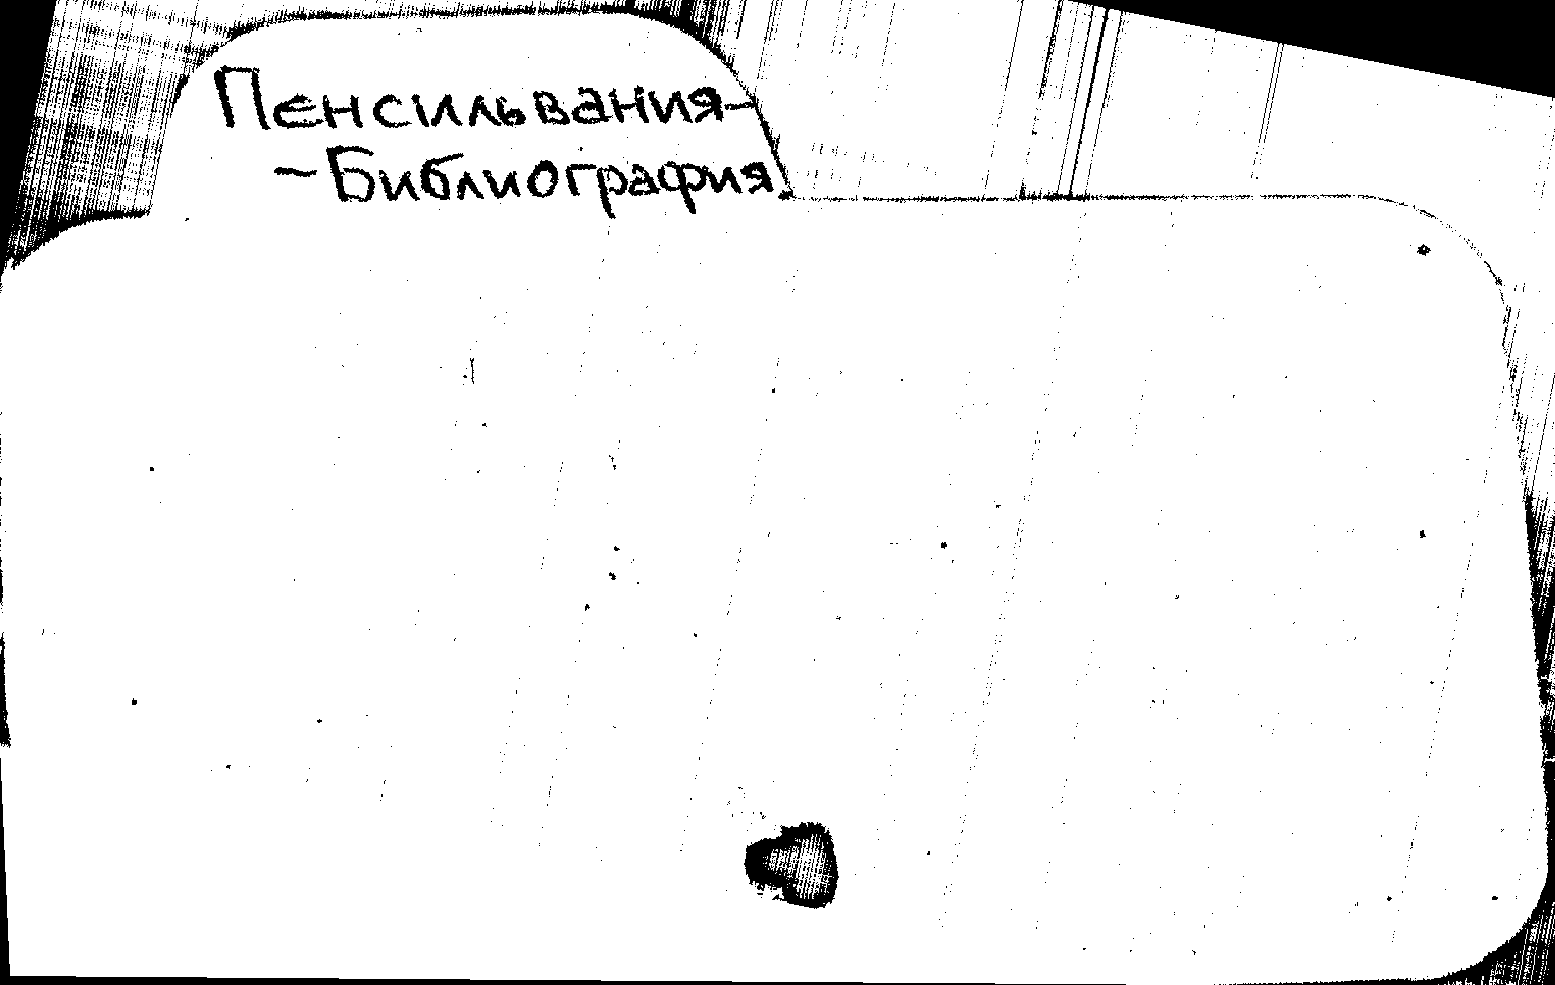 Пенсильвания-
-Библиография.